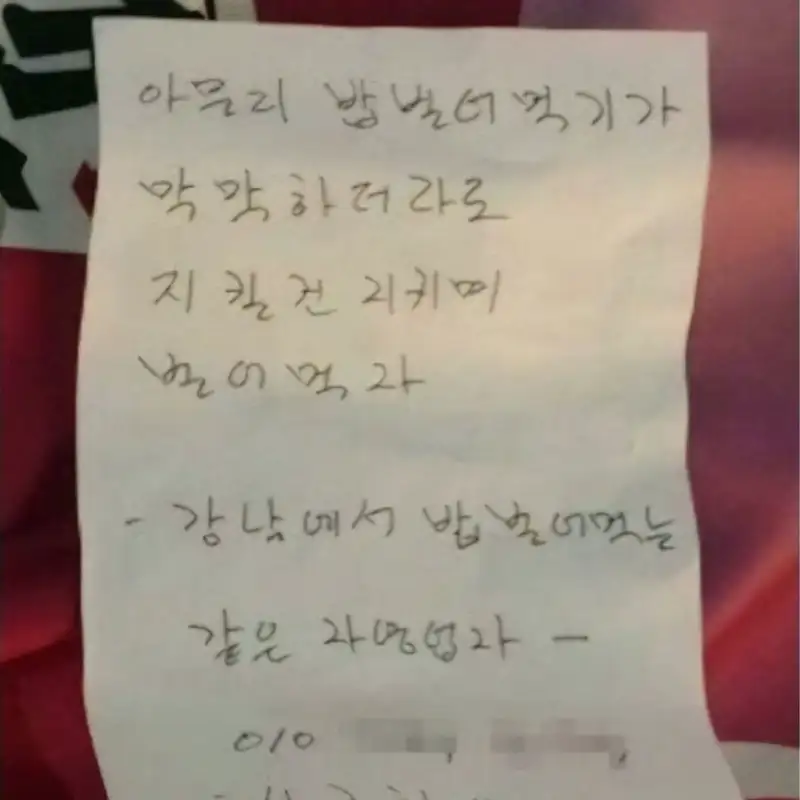 아무리 밥벌어먹기가
막막하더라도
지킬건 지키며
벌어먹자
- 강남에서 밥벌어먹는
같은 자영업자 -
010